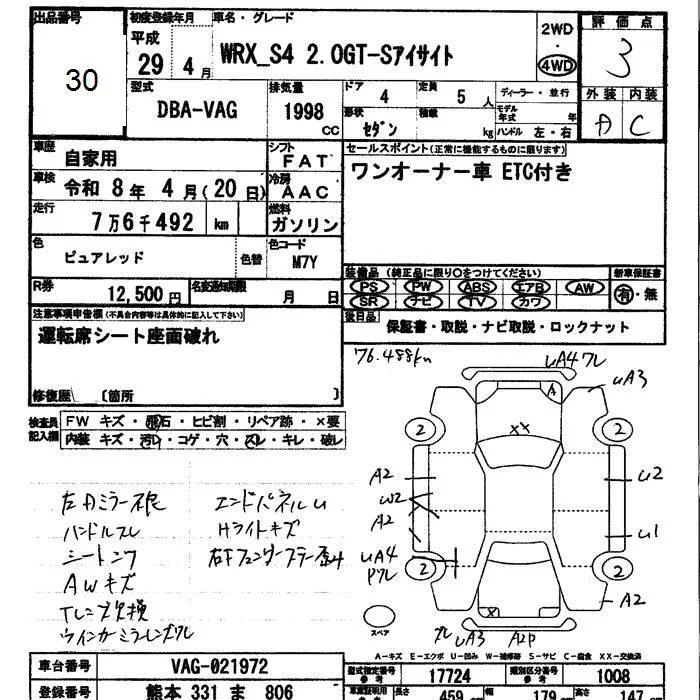 出品番号
30
初度登録年月
平成
29 4月
車名・グレード
WRX_S4 2.0GT-Sアイサイト
2WD
・
4WD
評価点
3
型式
DBA-VAG
排気量
1998
cc
ドア
4
定員
5 人
形状
セダン
積載
kg
ディーラー・並行
モデル年式 年
ハンドル 左・右
外装 内装
A C
車歴
自家用
シフト
FAT
車検
令和 8年 4月(20日)
冷房
AAC
走行
7万6千492 km
燃料
ガソリン
色
ピュアレッド
色替
色コード
M7Y
R券
12,500円
名変通知期限
月 日
セールスポイント(正常に機能するものに限ります)
ワンオーナー車 ETC付き
装備品(純正品に限り○をつけてください)
PS PW ABS エアB AW
SR ナビ TV カワ
新車保証書
有・無
後日品
保証書・取説・ナビ取説・ロックナット
注意事項申告欄(不具合内容等は具体的に記入して下さい)
運転席シート座面破れ
修復歴 〔箇所 〕
検査員記入欄
FW キズ・飛石・ヒビ割・リペア跡・×要
内装 キズ・汚レ・コゲ・穴・スレ・キレ・破レ
76.488km
UA4ワレ
UA3
A
XX
2
2
A2
W2
A2
U2
U1
UA4
ワレ
2
2
A2
X
UA3
A2P
スペア
ハンドルスレ
AWキズ
エンドパネルU
Hライトキズ
A-キズ E-エクボ U-凹み W-補修跡 S-サビ C-腐食 XX-交換済
車台番号
VAG-021972
登録番号
熊本 331 ま 806
型式指定番号
17724
類別区分番号
1008
長さ
459 cm
幅
179 cm
高さ
147 cm